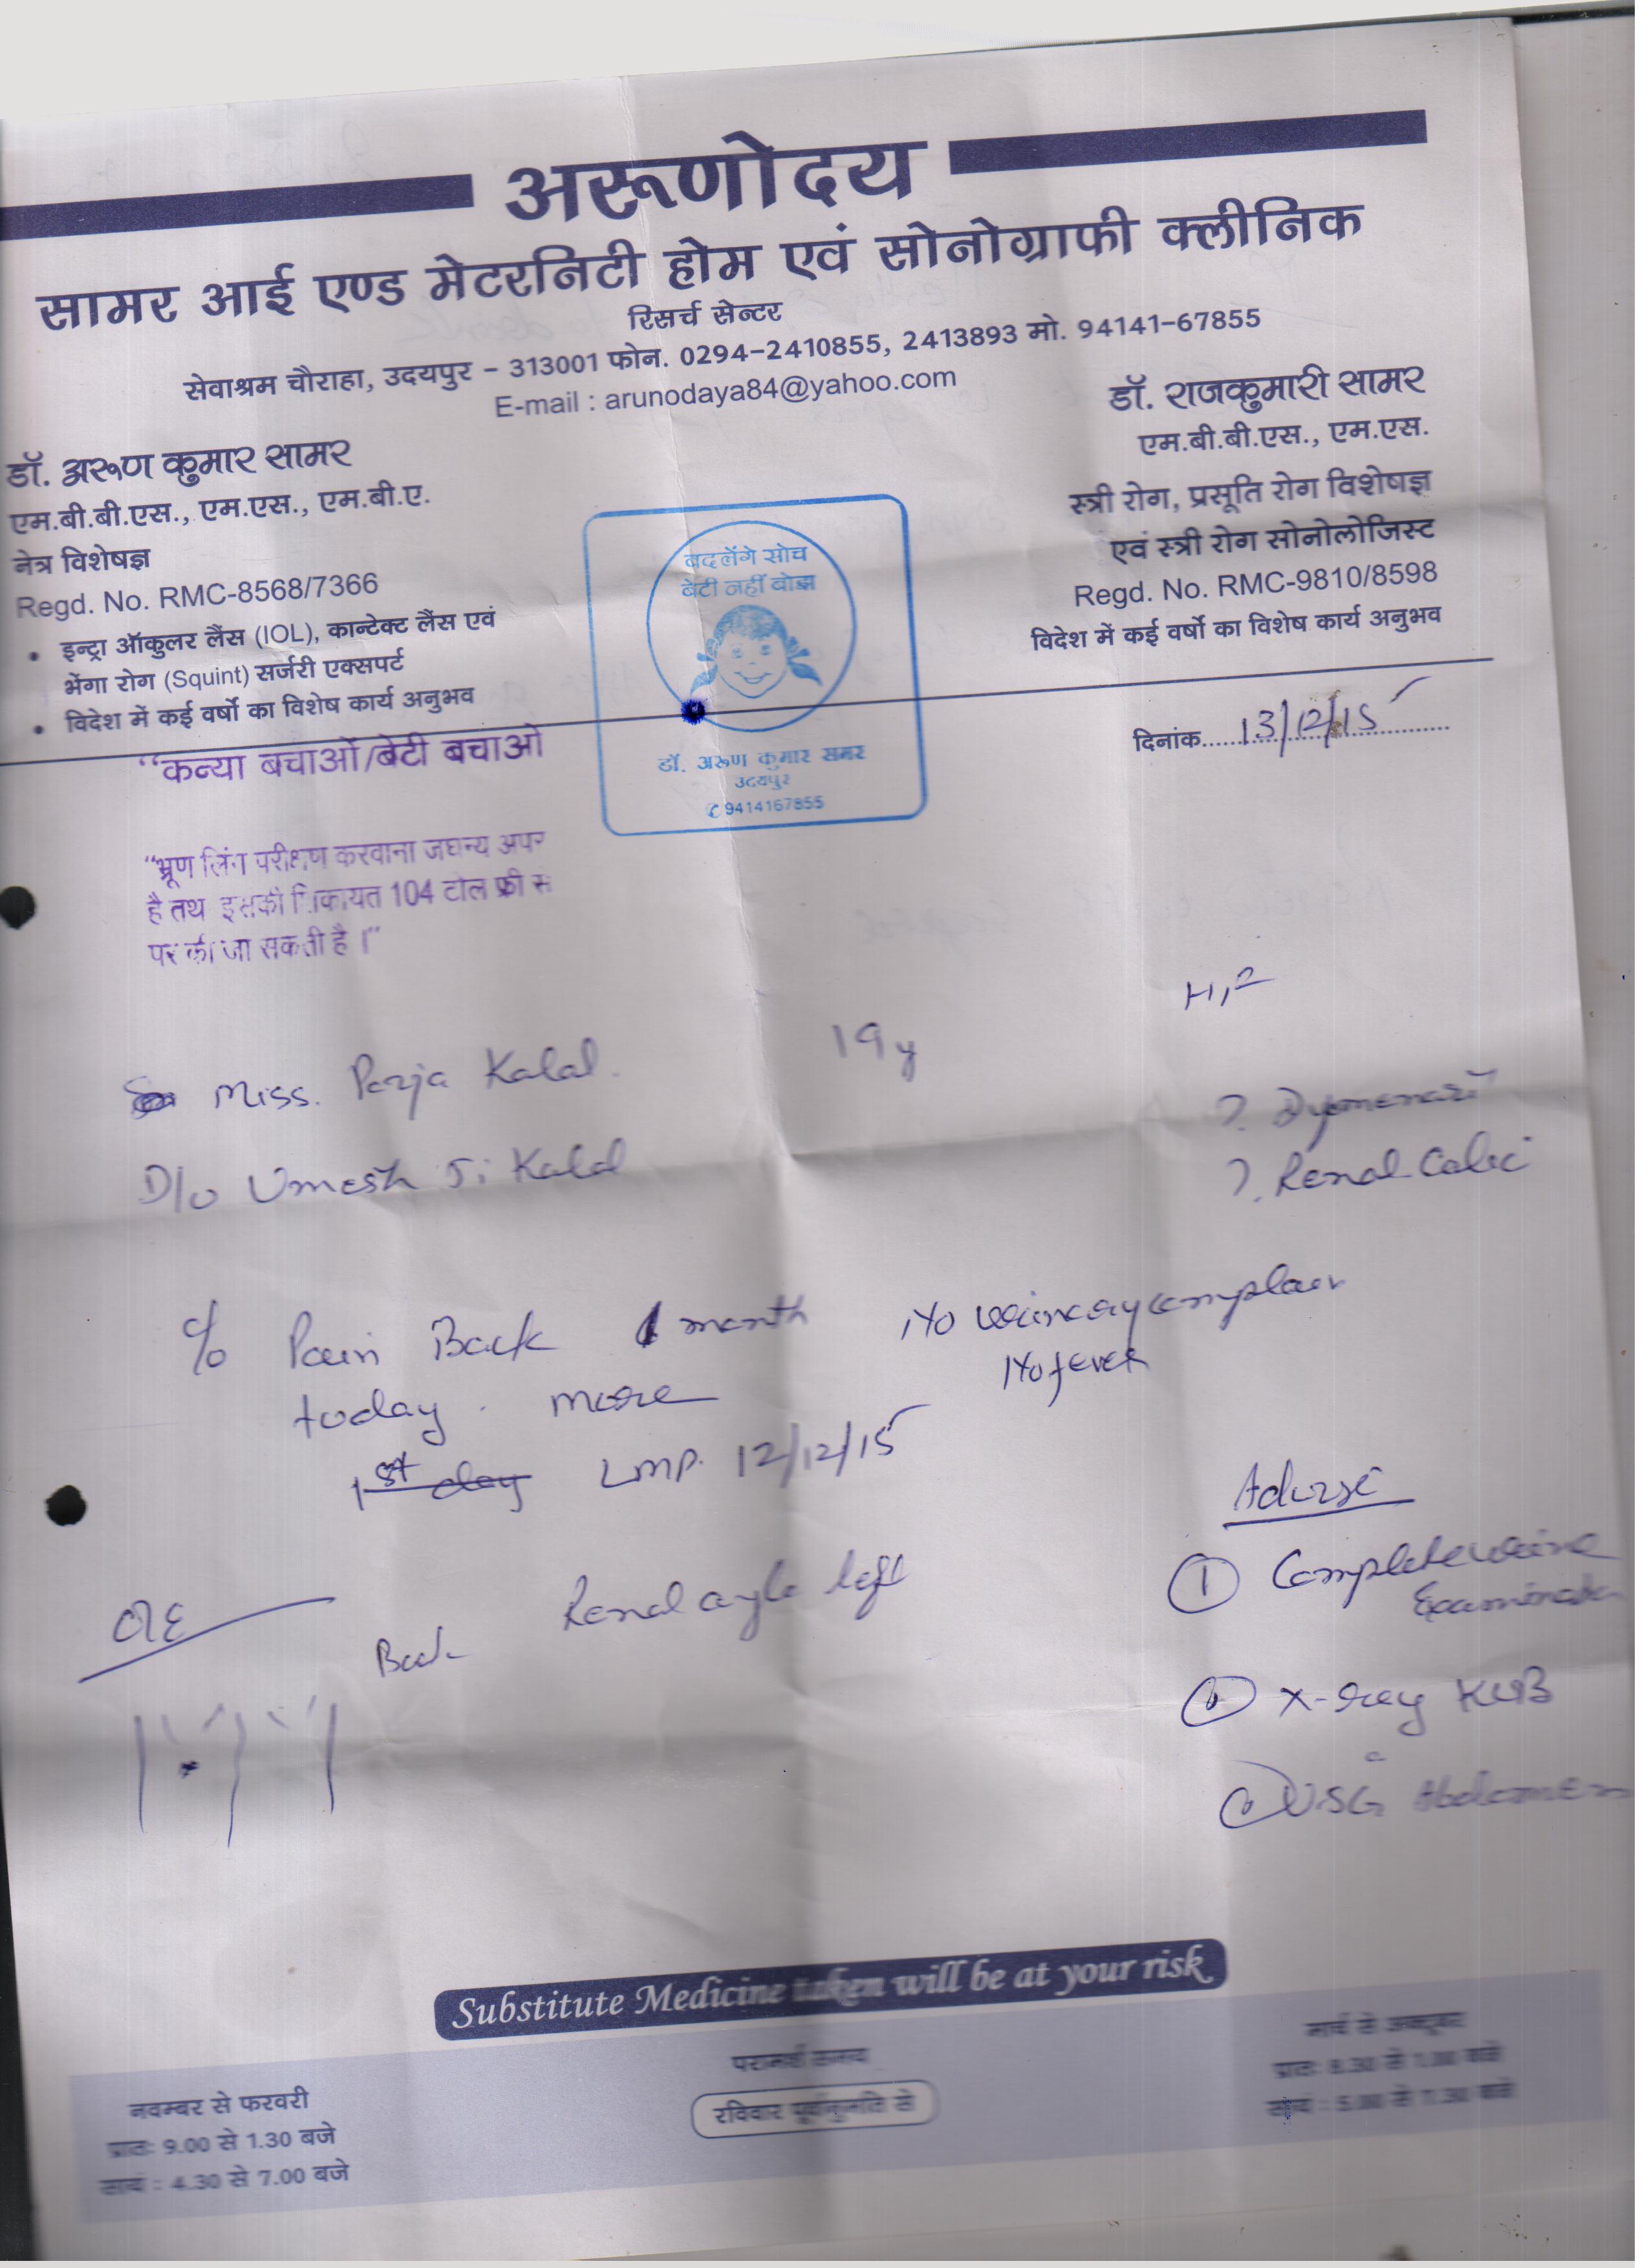 अरूणोदय
सामर आई एण्ड मेटरनिटी होम एवं सोनोग्राफी क्लीनिक
रिसर्च सेन्टर
सेवाश्रम चौराहा, उदयपुर - 313001 फोन. 0294-2410855, 2413893 मो. 94141-67855
E-mail : arunodaya84@yahoo.com
डॉ. अरूण कुमार सामर
एम.बी.बी.एस., एम.एस., एम.बी.ए.
नेत्र विशेषज्ञ
Regd. No. RMC-8568/7366
• इन्ट्रा ऑकुलर लैंस (IOL), कान्टेक्ट लैंस एवं
भेंगा रोग (Squint) सर्जरी एक्सपर्ट
• विदेश में कई वर्षो का विशेष कार्य अनुभव
डॉ. राजकुमारी सामर
एम.बी.बी.एस., एम.एस.
स्त्री रोग, प्रसूति रोग विशेषज्ञ
एवं स्त्री रोग सोनोलोजिस्ट
Regd. No. RMC-9810/8598
विदेश में कई वर्षो का विशेष कार्य अनुभव
बदलेंगे सोच
बेटी नहीं बोझ
डॉ. अरूण कुमार समर
उदयपुर
✆ 9414167855
दिनांक 13/12/15
"कन्या बचाओं/बेटी बचाओ
"भ्रूण लिंग परीक्षण करवाना जघन्य अपर
है तथ इसकी शिकायत 104 टोल फ्री स
पर की जा सकती है ।"
Miss. Kalal. 19 y
D/o Umesh Ji Kalal
? Renal Colic
c/o Pain Back 1 month
today. more
1st day LMP. 12/12/15
No fever
O/E
Back Renal angle left
Advise
① Complete urine
Examination
X-ray KUB
USG Abdomen
Substitute Medicine taken will be at your risk
नवम्बर से फरवरी
प्रातः 9.00 से 1.30 बजे
सायं : 4.30 से 7.00 बजे
परामर्श समय
रविवार पूर्वानुमति से
मार्च से अक्टूबर
प्रातः 8.30 से 1.00 बजे
सायं : 5.00 से 7.30 बजे